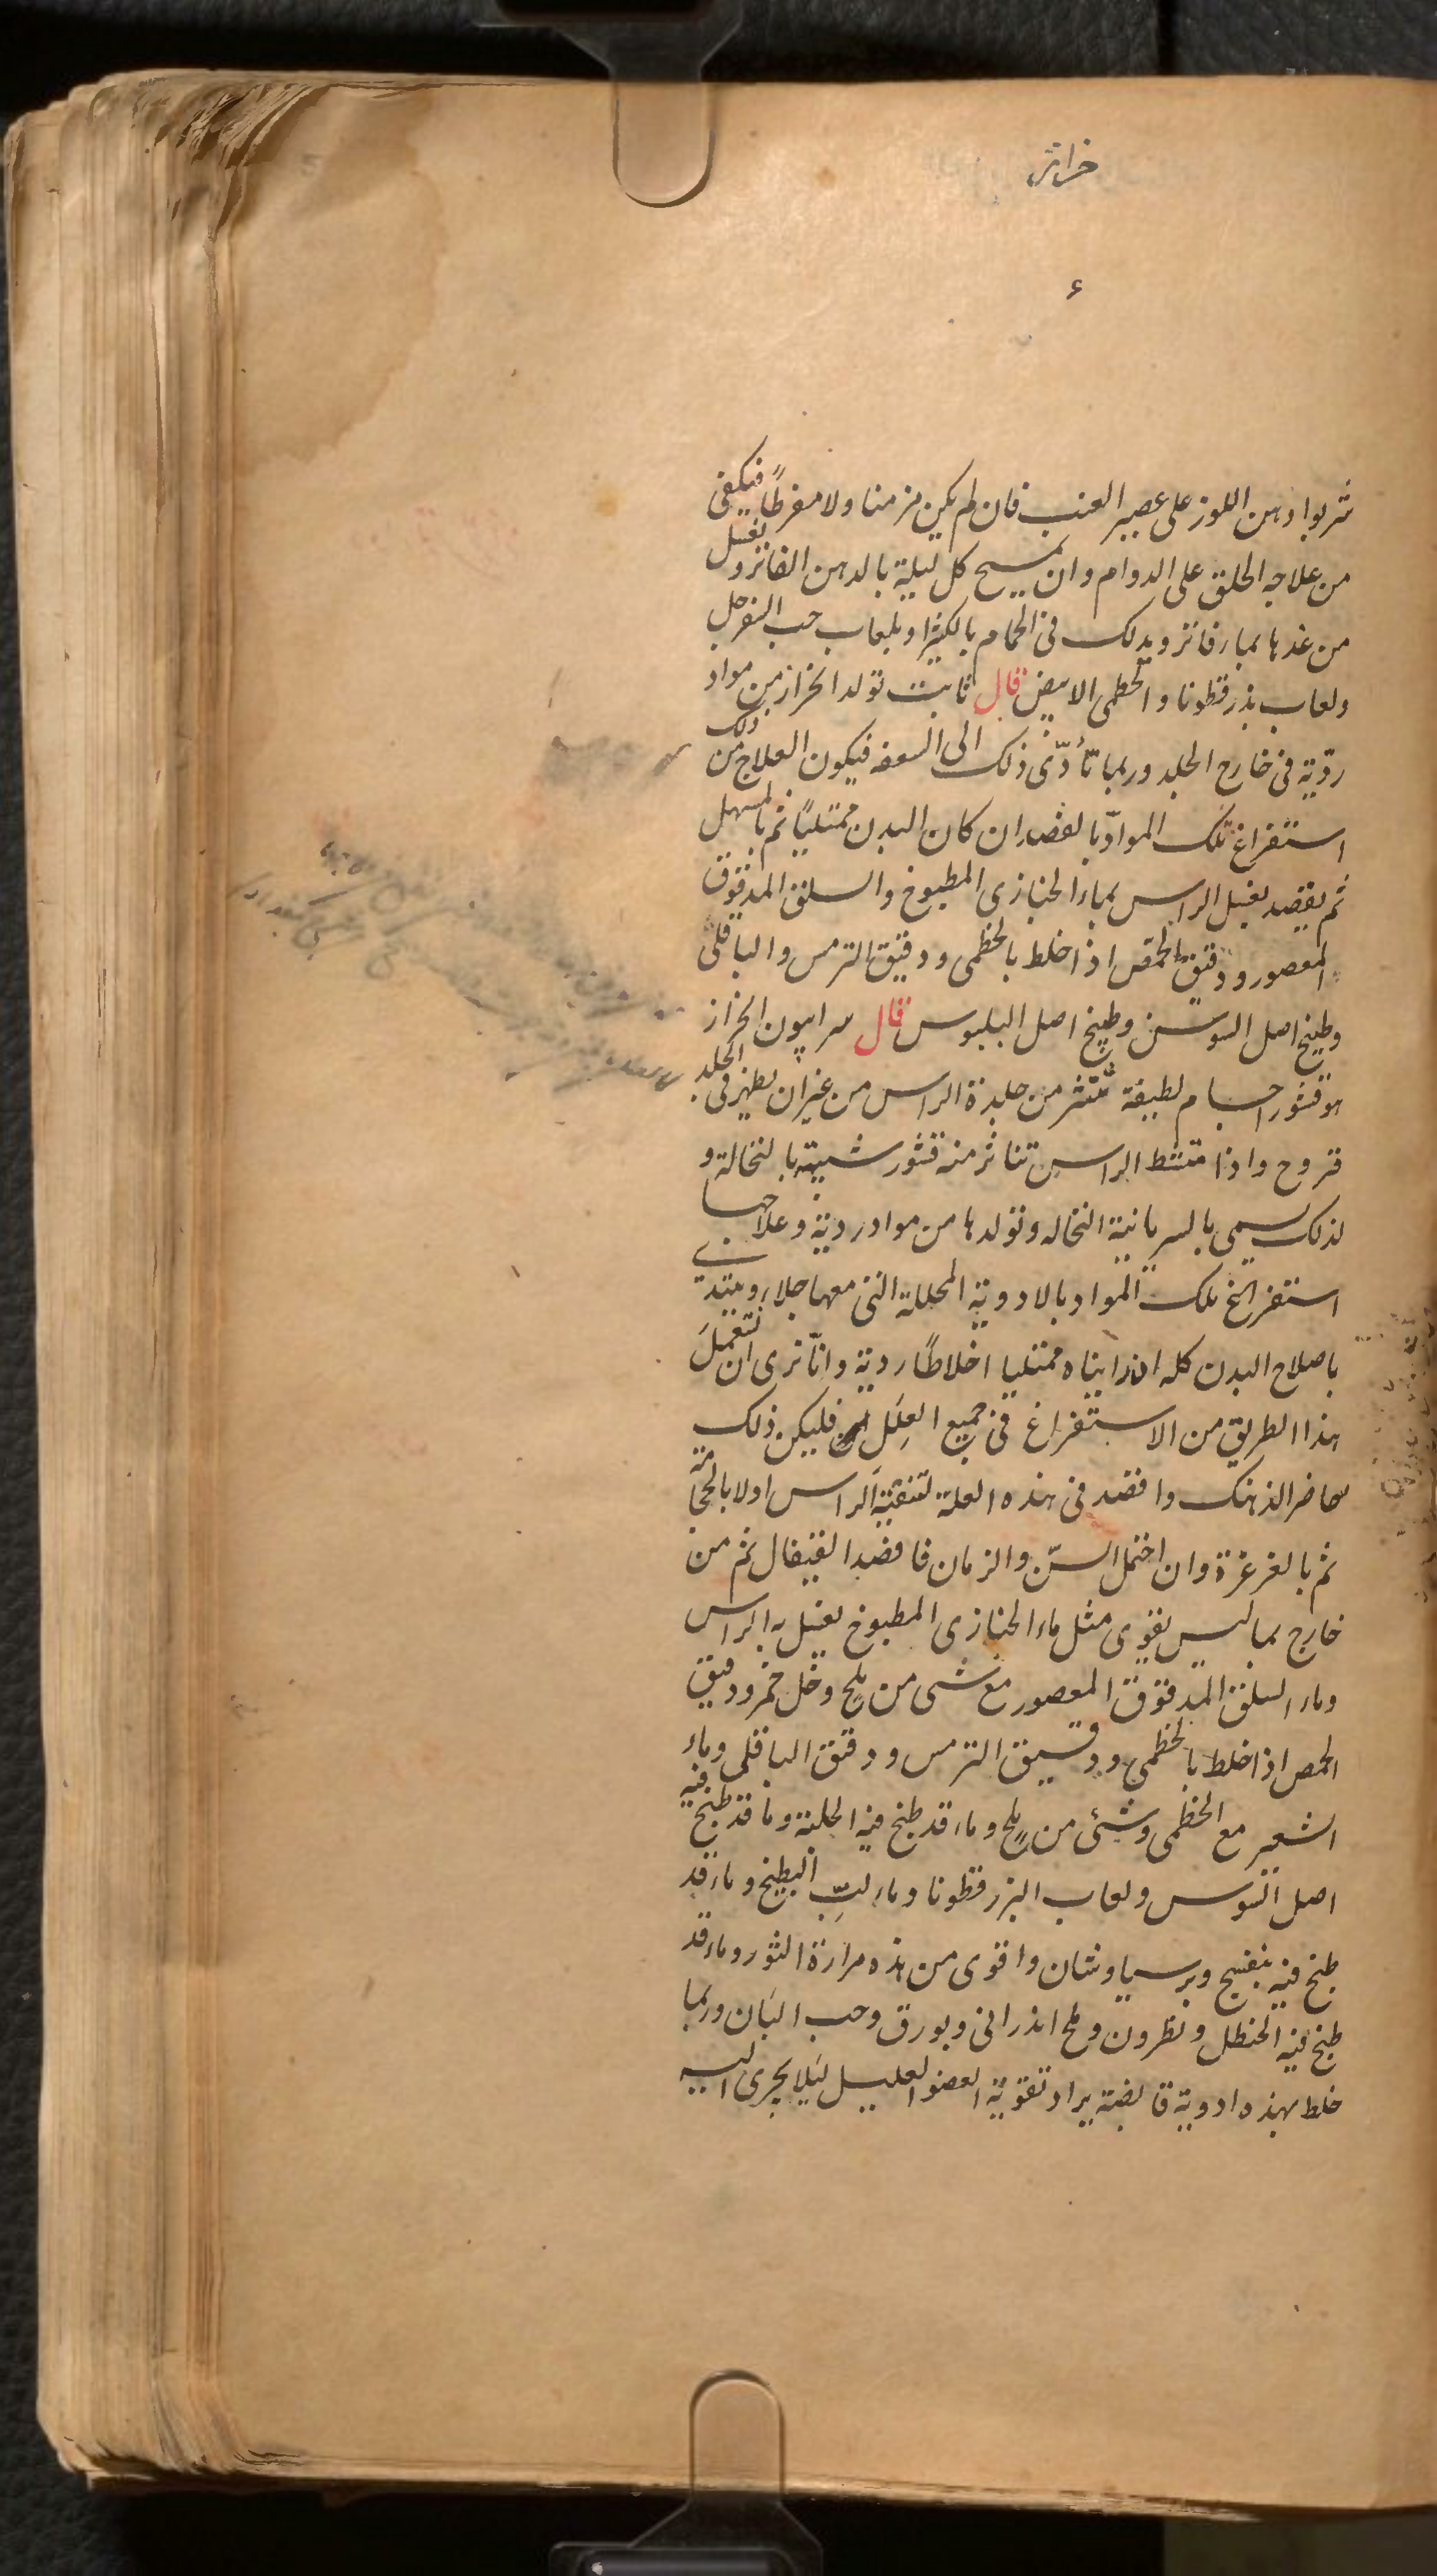 خراز
٤
شربوا دهن اللوز على عصير العنب فان لم يكن مزمنا ولا مفرطًا فيكفى
من علاجه الحلق على الدوام وان يمسح كل ليلة بالدهن الفاتر ويغسل
من غدها بماء فاتر ويدلك فى الحمام بالكثيرا وبلعاب حب السفرجل
ولعاب بذر قطونا والخطمى الابيض قال ثابت تولد الخراز من مواد
رديّة فى خارج الجلد وربما تأدّى ذلك الى السعفه فيكون العلاج من ذلك
استفراغ تلك الموادّ بالفصد ان كان البدن ممتليًا ثم بالمسهل
ثم يقصد لغسل الراس بماء الخبازى المطبوخ والسلق المدقوق
المعصور ودقيق الحمّص اذا خلط بالخطمى ودقيق الترمس والباقلى
وطبيخ اصل السوسن وطبيخ اصل البلبوس قال سرابيون الخراز
هو قشور اجسام لطيفة تنتثر من جلدة الراس من غير ان يظهر فى الجلد
قروح واذا مشط الراس تناثر منه قشور شبيهة بالنخالة و
لذلك يسمى بالسريانية النخاله وتولدها من مواد ردية وعلاجها
استفراغ تلك المواد بالادوية المحللة التى معها جلاء ويبتدئ
باصلاح البدن كله اذا راينا ه ممتليا اخلاطًا ردية وانّا نرى ان نستعمل
هذا الطريق من الاستفراغ فى جميع العلل فليكن ذلك
حاضر الذهنك واقصد فى هذه العلة لتنقية الراس اولا بالحجامة
ثم بالغرغرة وان احتمل السنّ والزمان فافصد القيفال ثم من
خارج بما ليس بقوى مثل ماء الخبازى المطبوخ يغسل به الراس
وماء السلق المدقوق المعصور مع شىء من ملح وخل خمر ودقيق
الحمص اذا خلط بالخطمى ودقيق الترمس ودقيق الباقلى وماء
الشعير مع الخطمى وشئ من ملح وماء قد طبخ فيه الحلبة وما قد طبخ فيه
اصل السوس ولعاب البزر قطونا وماء لبّ البطيخ وماء قد
طبخ فيه بنفسج وبرسياوشان واقوى من هذه مرارة الثور وماء قد
طبخ فيه الحنظل ونطرون وملح اندرانى وبورق وحب البان وربما
خلط بهذه ادوية قابضة يراد تقوية العضو العليل ليلا يجرى اليه